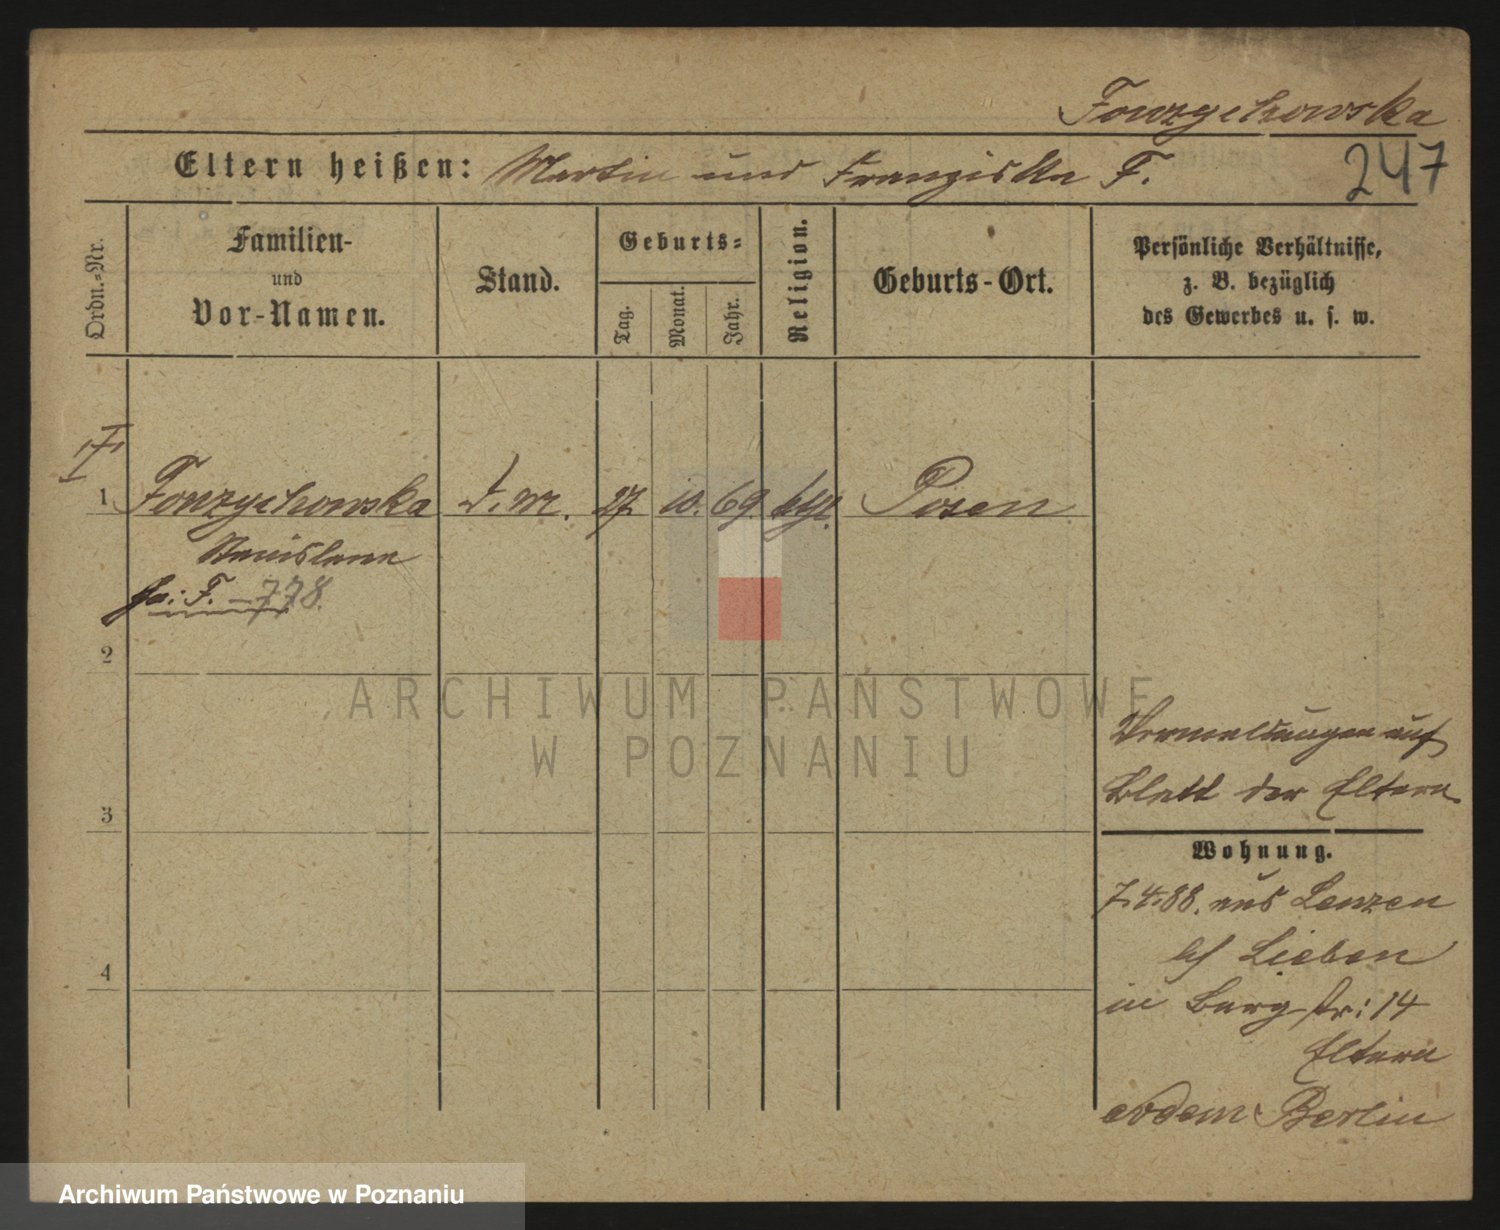 Fonzychowska
Eltern heißen: Martin und Franziska F.
247
Ordn.-Nr.
Familien-
und
Vor-Namen.
Stand.
Geburts-
Tag.
Monat.
Jahr.
Religion.
Geburts-Ort.
Persönliche Verhältnisse,
z. B. bezüglich
des Gewerbes u. s. w.
1 Fonzychowska d. M. 27 10. 69 kth. Posen
Stanislawa
Fa: F. - 778.
2
ARCHIWUM PAŃSTWOWE
W POZNANIU
Vermeldungen auf
Blatt der Eltern
3
Wohnung.
7.4.88. aus Lenzen
bf Lieben
4
in Bergstr: 14
Eltern
eodem Berlin
Archiwum Państwowe w Poznaniu